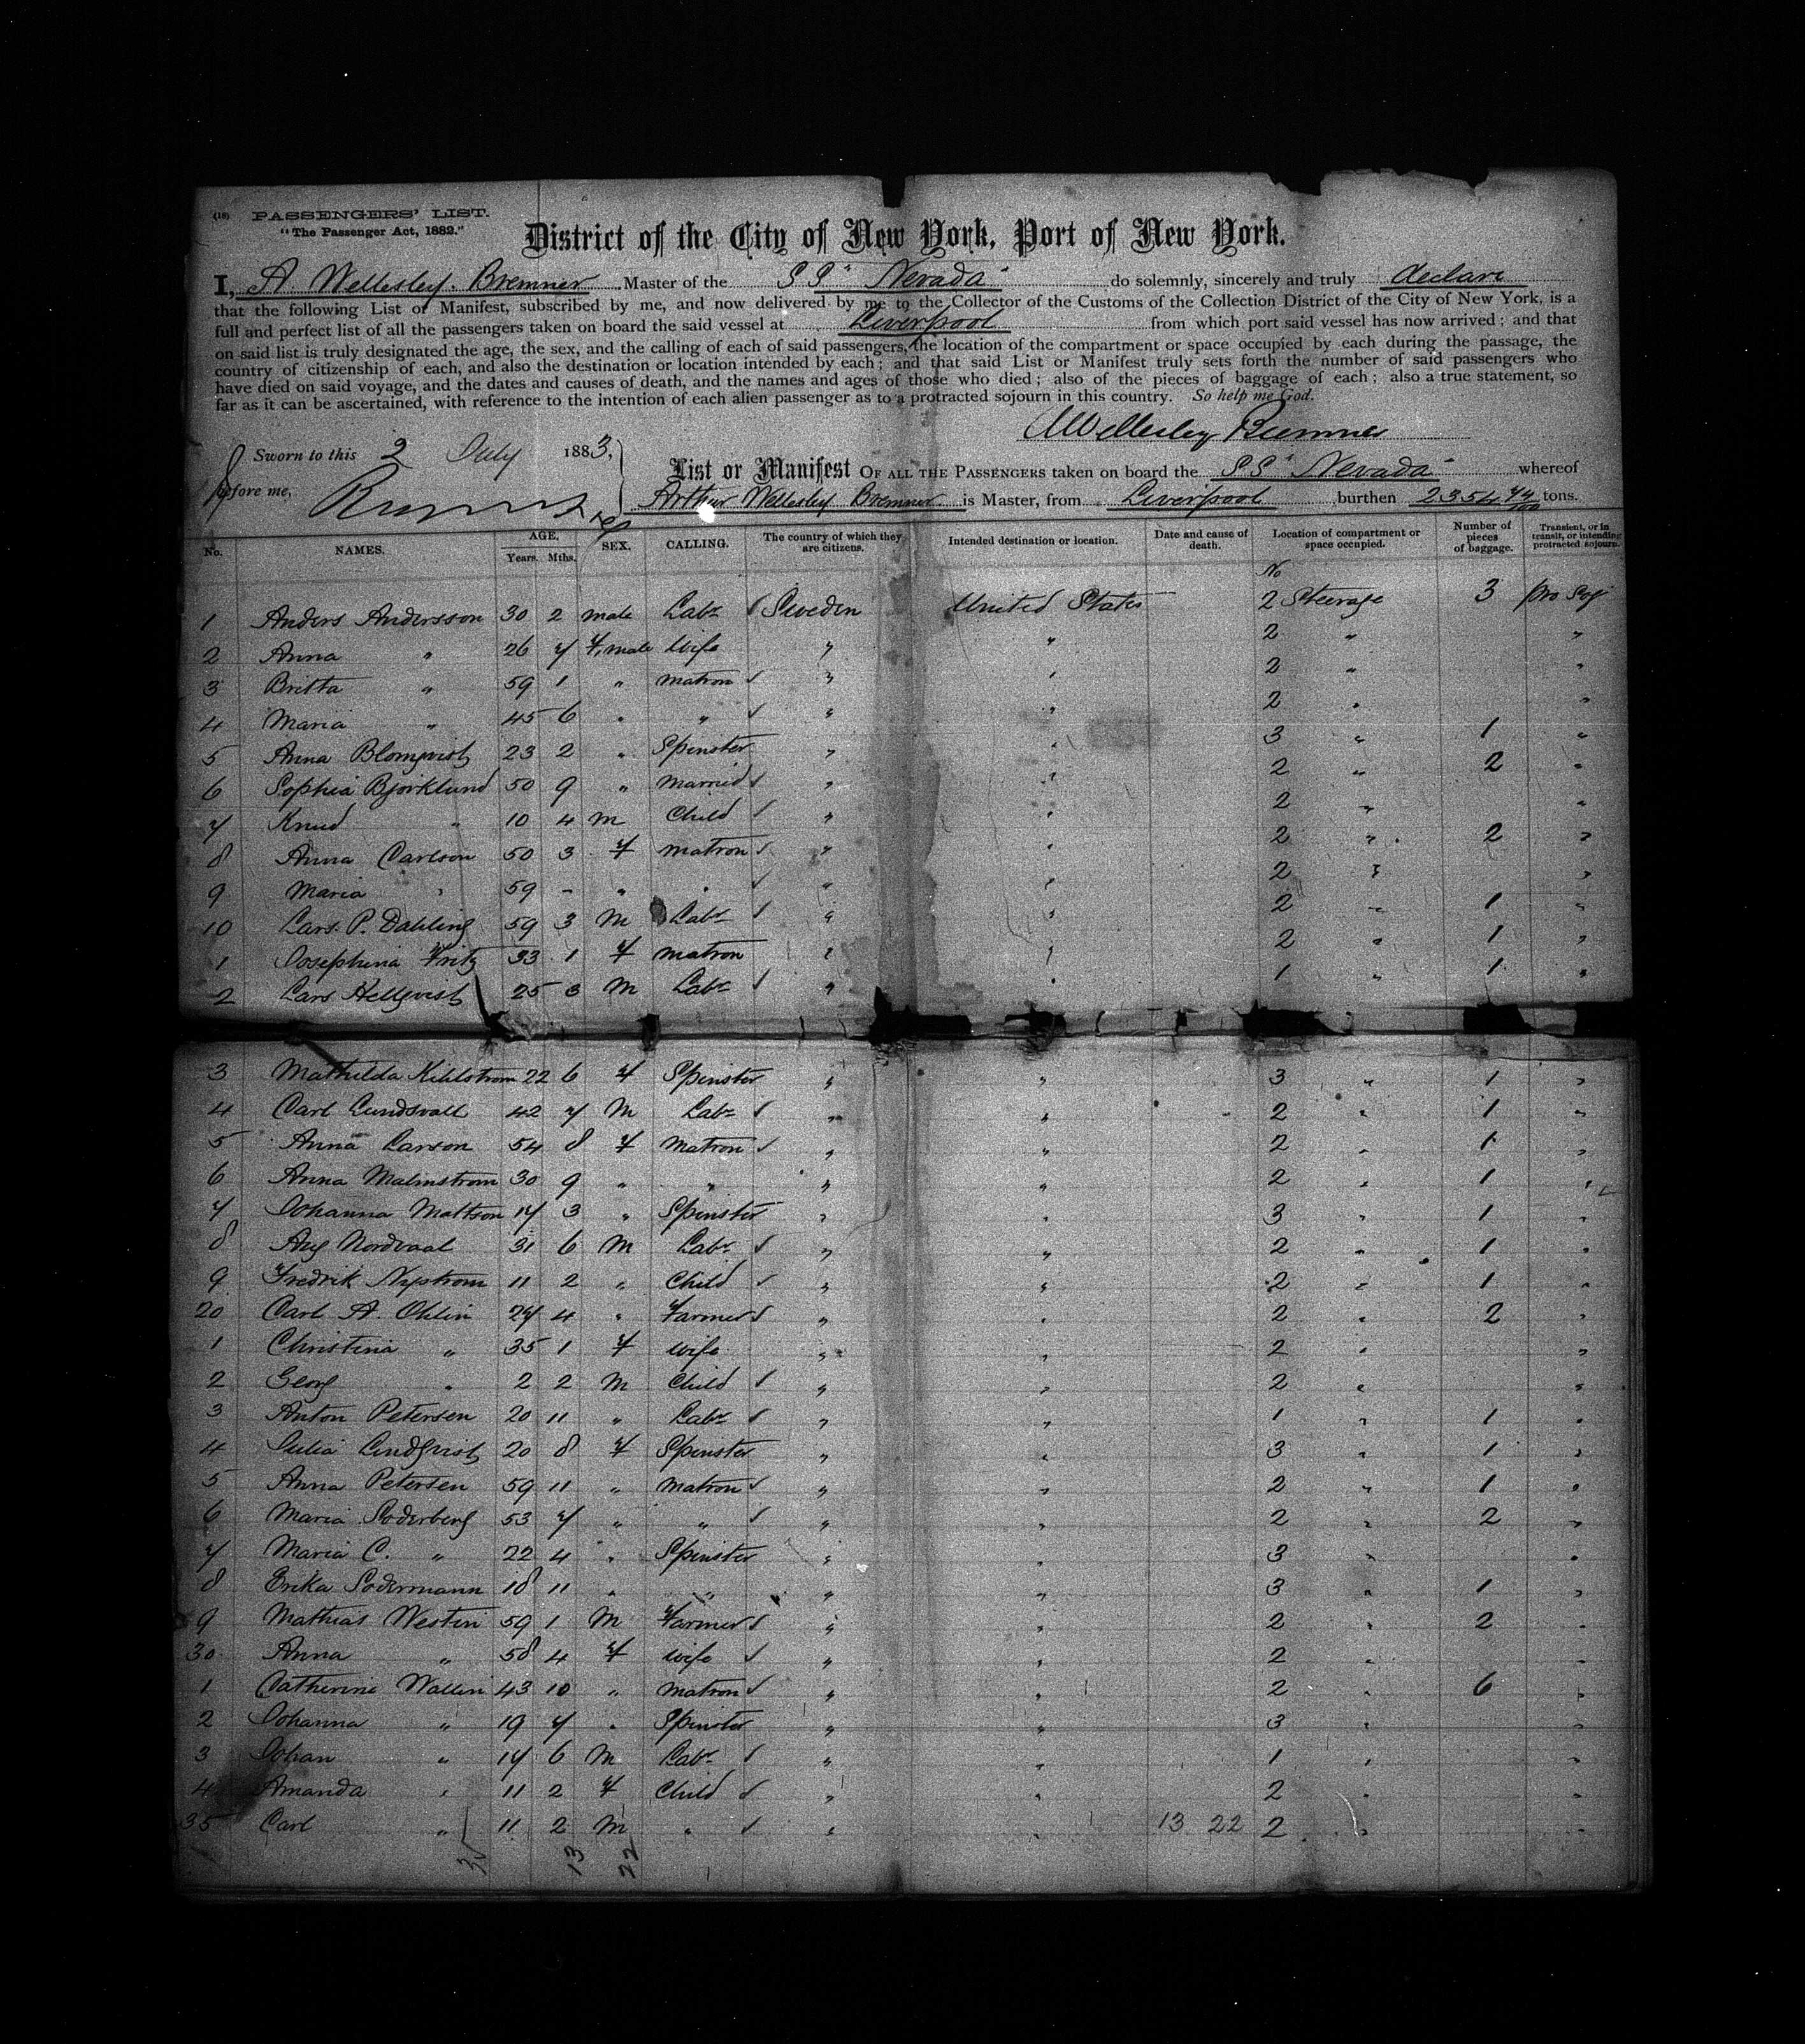 (18) PASSENGERS' LIST.
"The Passenger Act, 1882."
District of the City of New York, Port of New York.
I, A Wellesley Bremner Master of the SS "Nevada" do solemnly, sincerely and truly declare
that the following List or Manifest, subscribed by me, and now delivered by me to the Collector of the Customs of the Collection District of the City of New York, is a
full and perfect list of all the passengers taken on board the said vessel at Liverpool from which port said vessel has now arrived; and that
on said list is truly designated the age, the sex, and the calling of each of said passengers, the location of the compartment or space occupied by each during the passage, the
country of citizenship of each, and also the destination or location intended by each; and that said List or Manifest truly sets forth the number of said passengers who
have died on said voyage, and the dates and causes of death, and the names and ages of those who died; also of the pieces of baggage of each; also a true statement, so
far as it can be ascertained, with reference to the intention of each alien passenger as to a protracted sojourn in this country. So help me God.
AWellesley Bremner
Sworn to this 2 July 1883,
before me,
List or Manifest OF ALL THE PASSENGERS taken on board the SS "Nevada" whereof
Arthur Wellesley Bremner is Master, from Liverpool burthen 2354 44/100 tons.
No. NAMES. AGE, Years. Mths. SEX. CALLING. The country of which they are citizens. Intended destination or location. Date and cause of death. Location of compartment or space occupied. Number of pieces of baggage. Transient, or in transit, or intending protracted sojourn.
No
1 Anders Andersson 30 2 male Labr ✓ Sweden United States 2 Steerage 3 Pro Soj
2 Anna " 26 7 Female Wife " " 2 " "
3 Britta " 59 1 " matron ✓ " " 2 " "
4 Maria " 45 6 " " ✓ " " 2 " "
5 Anna Blomqvist 23 2 " Spinster " " 3 " 1 "
6 Sophia Bjorklund 50 9 " Married ✓ " " 2 " 2 "
7 Knud " 10 4 m Child ✓ " " 2 " "
8 Anna Carlson 50 3 F matron ✓ " " 2 " 2 "
9 Maria " 59 - " " ✓ " " 2 " "
10 Lars P. Dahling 59 3 M Labr ✓ " " 2 " 1 "
1 Josephina Fritz 33 1 F matron " " 2 " 1 "
2 Lars Hellqvist 25 3 M Labr ✓ " " 1 " 1 "
3 Mathilda Kihlstrom 22 6 F Spinster " " 3 " 1 "
4 Carl Lundvall 42 7 M Labr ✓ " " 2 " 1 "
5 Anna Larson 54 8 F Matron ✓ " " 2 " 1 "
6 Anna Malmstrom 30 9 " " " " 2 " 1 "
7 Johanna Mattson 17 3 " Spinster " " 3 " 1 "
8 Aug Nordvaal 31 6 M Labr ✓ " " 2 " 1 "
9 Fredrik Nystrom 11 2 " Child ✓ " " 2 " 1 "
20 Carl A. Ohlin 27 4 " Farmer ✓ " " 2 " 2 "
1 Christina " 35 1 F wife " " 2 " "
2 Georg " 2 2 M Child ✓ " " 2 " "
3 Anton Petersen 20 11 " Labr ✓ " " 1 " 1 "
4 Julia Lindqvist 20 8 F Spinster " " 3 " 1 "
5 Anna Petersen 59 11 " matron ✓ " " 2 " 1 "
6 Maria Soderberg 53 7 " " ✓ " " 2 " 2 "
7 Maria C. " 22 4 " Spinster " " 3 " "
8 Erika Sodermann 18 11 " " " " 3 " 1 "
9 Mathias Westin 59 1 M Farmer ✓ " " 2 " 2 "
30 Anna " 58 4 F wife ✓ " " 2 " "
1 Catherine Wallin 43 10 " matron ✓ " " 2 " 6 "
2 Johanna " 19 7 " Spinster " " 3 " "
3 Johan " 17 6 M Labr ✓ " " 1 " "
4 Amanda " 11 2 F Child ✓ " " 2 " "
35 Carl " 11 2 M " ✓ " " 13 22 2 " "
35 13 22